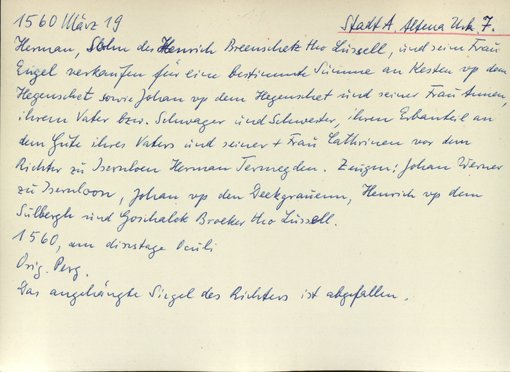 1560 März 19
Stadt A. Altena Urk. 7.
Herman, Sohn des Henrich Breenschetz tho Lüssell, und seine Frau
Engel verkaufen für eine bestimmte Summe an Kesten vp dem
Hegenschet sowie Johan vp dem Hegenschet und seiner Frau Annen,
ihrem Vater bzw. Schwager und Schwester, ihren Erbanteil an
dem Gute ihres Vaters und seiner + Frau Cathrinen vor dem
Richter zu Isernloen Herman Termegden. Zeugen: Johan Werner
zu Isernloon, Johan vp den Deekgrauenn, Henrich vp dem
Sülbergh und Goschalck Broeker tho Lüssell.
1560, am dinstage Oculi
Orig. Perg.
Das angehängte Siegel des Richters ist abgefallen.